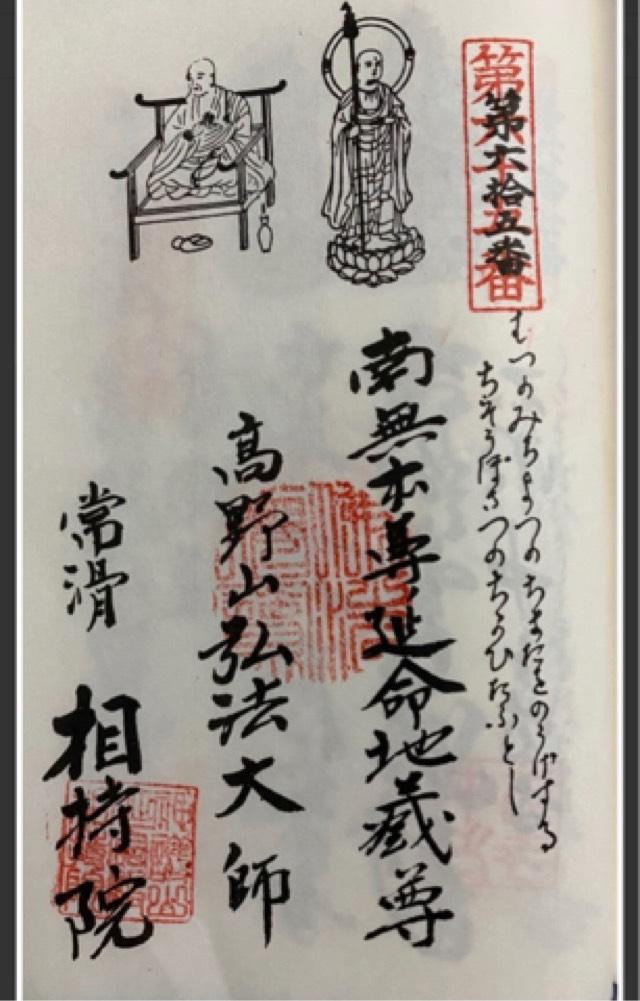 第六十五番
第六拾五番
むつのみちまつのちまたをのうけする
ちそうぼさつのちかひたふとし
南無本尊延命地蔵尊
高野山弘法大師
常滑
相持院